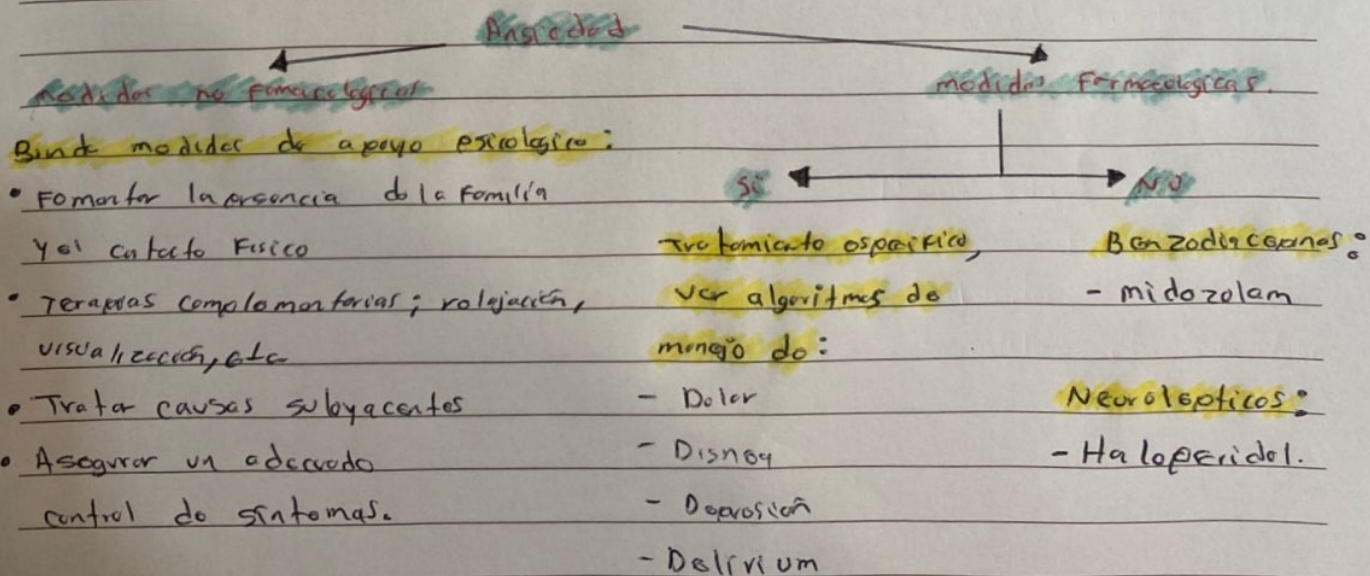 Ansiedad
medidas no farmacologicas
medidas Farmacologicas.
Binde medidas de apoyo psicologico:
• Fomentar la presencia de la Familia
y el contacto Fisico
• Terapias complementarias; relajación,
visualización, etc
• Tratar causas subyacentes
• Asegurar un adecuado
control de síntomas.
Sí
Tratamiento especifico,
ver algoritmos de
manejo de:
- Dolor
- Disnea
- Depresión
- Delirium
NO
Benzodiacepinas:
- midazolam
Neurolepticos:
- Haloperidol.